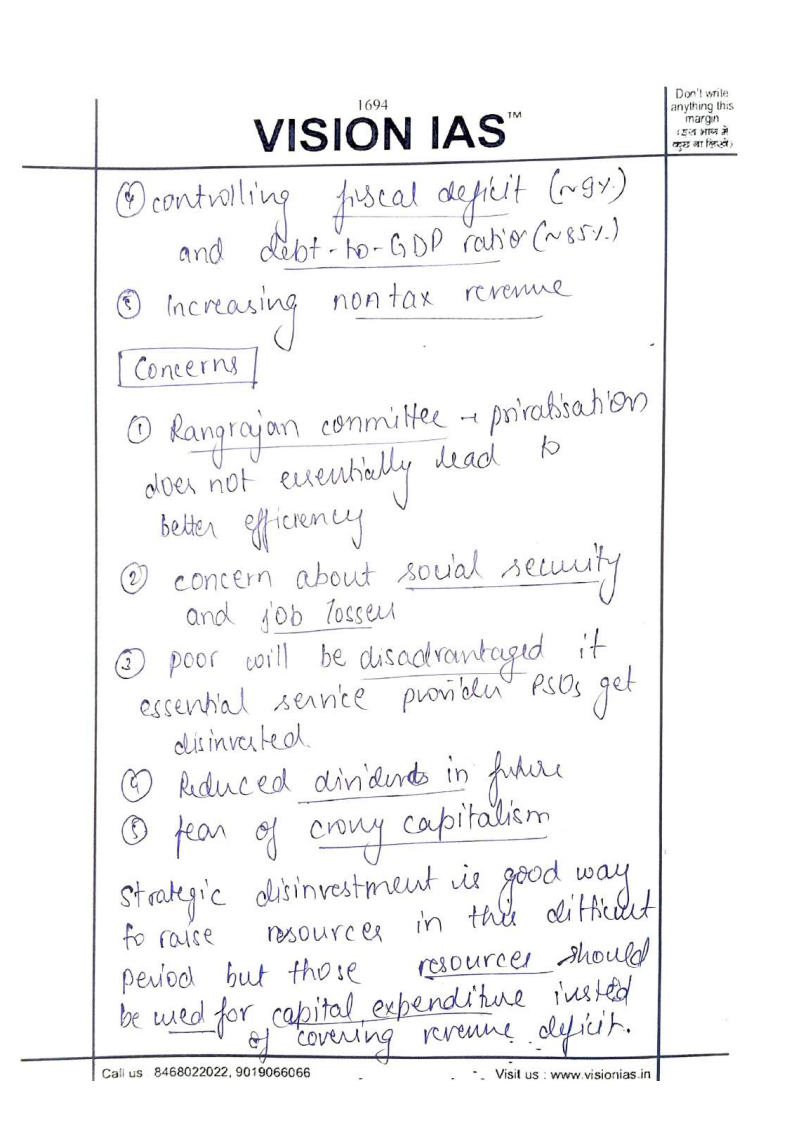 1694
VISION IAS™
Don't write
anything this
margin
(इस भाग में
कुछ ना लिखें)
④ controlling fiscal deficit (~9%)
and debt-to-GDP ratio (~85%)
⑤ Increasing non tax revenue
Concerns
① Rangrajan committee → privatisation
does not essentially lead to
better efficiency
② concern about social security
and job losses
③ poor will be disadvantaged if
essential service provider PSUs get
disinvested.
④ Reduced dividends in future
⑤ fear of crony capitalism
Strategic disinvestment is good way
to raise resources in this difficult
period but those resources should
be used for capital expenditure insted
of covering revenue deficit.
Call us 8468022022, 9019066066
Visit us : www.visionias.in